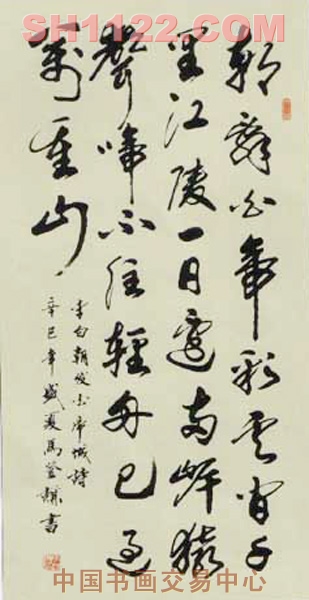 SH1122.COM
朝辭白帝彩雲間千
里江陵一日還兩岸猿
聲啼不住輕舟已過
萬重山
李白朝發白帝城詩
辛巳年盛夏馬登書
中国书画交易中心